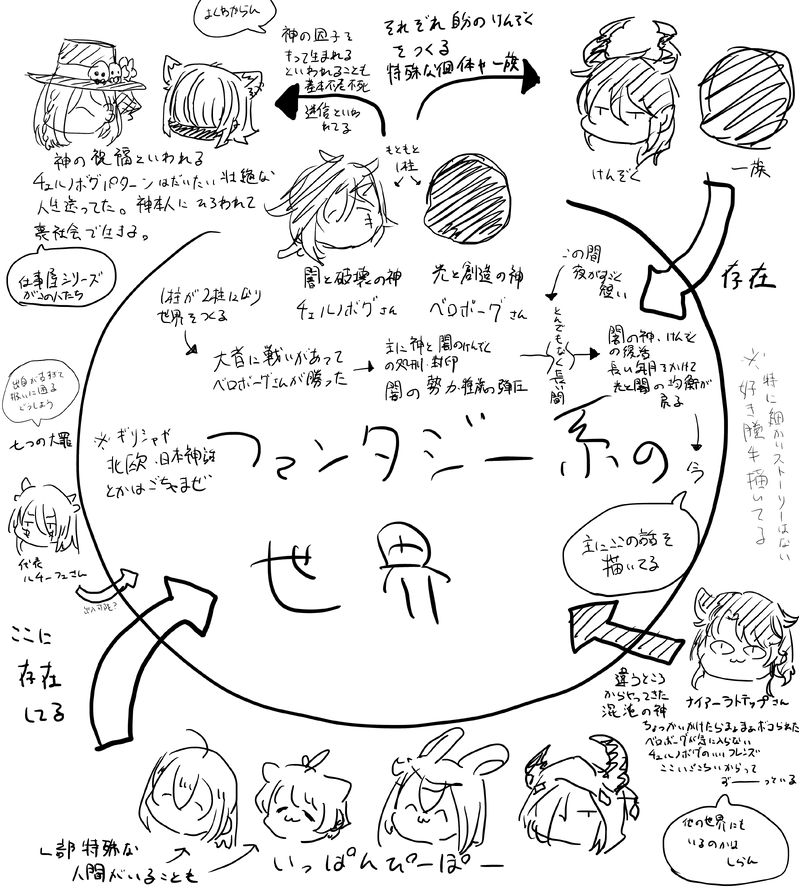 よくわからん
神の因子で
もって生まれる
といわれることも
基本不老不死
迷信といわ
れてる
それぞれ自分のけんぞく
をつくる
特殊な個体や一族
けんぞく
一族
神の祝福といわれる
チェルノボグパターンはだいたい壮絶な
人生送ってた。神本人にひろわれて
裏社会で生きる。
仕事屋シリーズ
がこの人たち
もともと
1柱
闇と破壊の神
チェルノボグさん
光と創造の神
ベロボーグさん
存在
1柱が2柱になり
世界をつくる
大昔に戦いがあって
ベロボーグさんが勝った
主に神と闇のけんぞく
の処刑、封印
闇の勢力、種族の弾圧
この間
夜がすごく
短い
とんでもなく長い間
闇の神、けんぞく
の復活
長い年月をかけて
光と闇の均衡が
戻る
今
主にここの話を
描いてる
※特に細かいストーリーはない
好き勝手描いてる
出自が古すぎて
扱いに困る
どうしよう
七つの大罪
代表
ルチーフェさん
出入可能?
※ギリシャや
北欧、日本神話
とかはごちゃまぜ
ファンタジー系の
世界
ここに
存在
してる
違うところ
からやってきた
混沌の神
ナイアーラトテップさん
ちょっかいかけたらまぁまぁボコられた
ベロボーグが気に入らない
チェルノボグのいいフレンズ
ここいごこちいいからって
ずーーっている
他の世界にも
いるのかは
しらん
一部特殊な
人間がいることも
いっぱんぴーぽー